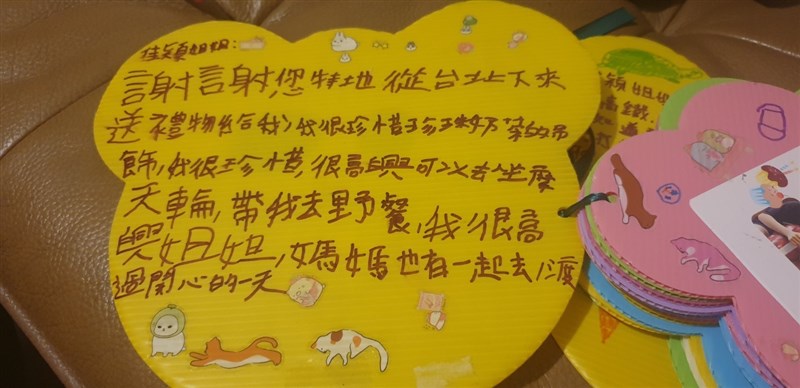 佳穎姐姐：
謝謝您特地從台北下來
送禮物給我，我很珍惜珍珠奶茶的吊
飾，我很珍惜，很高興可以去坐摩
天輪，帶我去野餐，我很高
興姐姐，媽媽也有一起去，渡
過開心的一天
穎姐姐
高鐵，